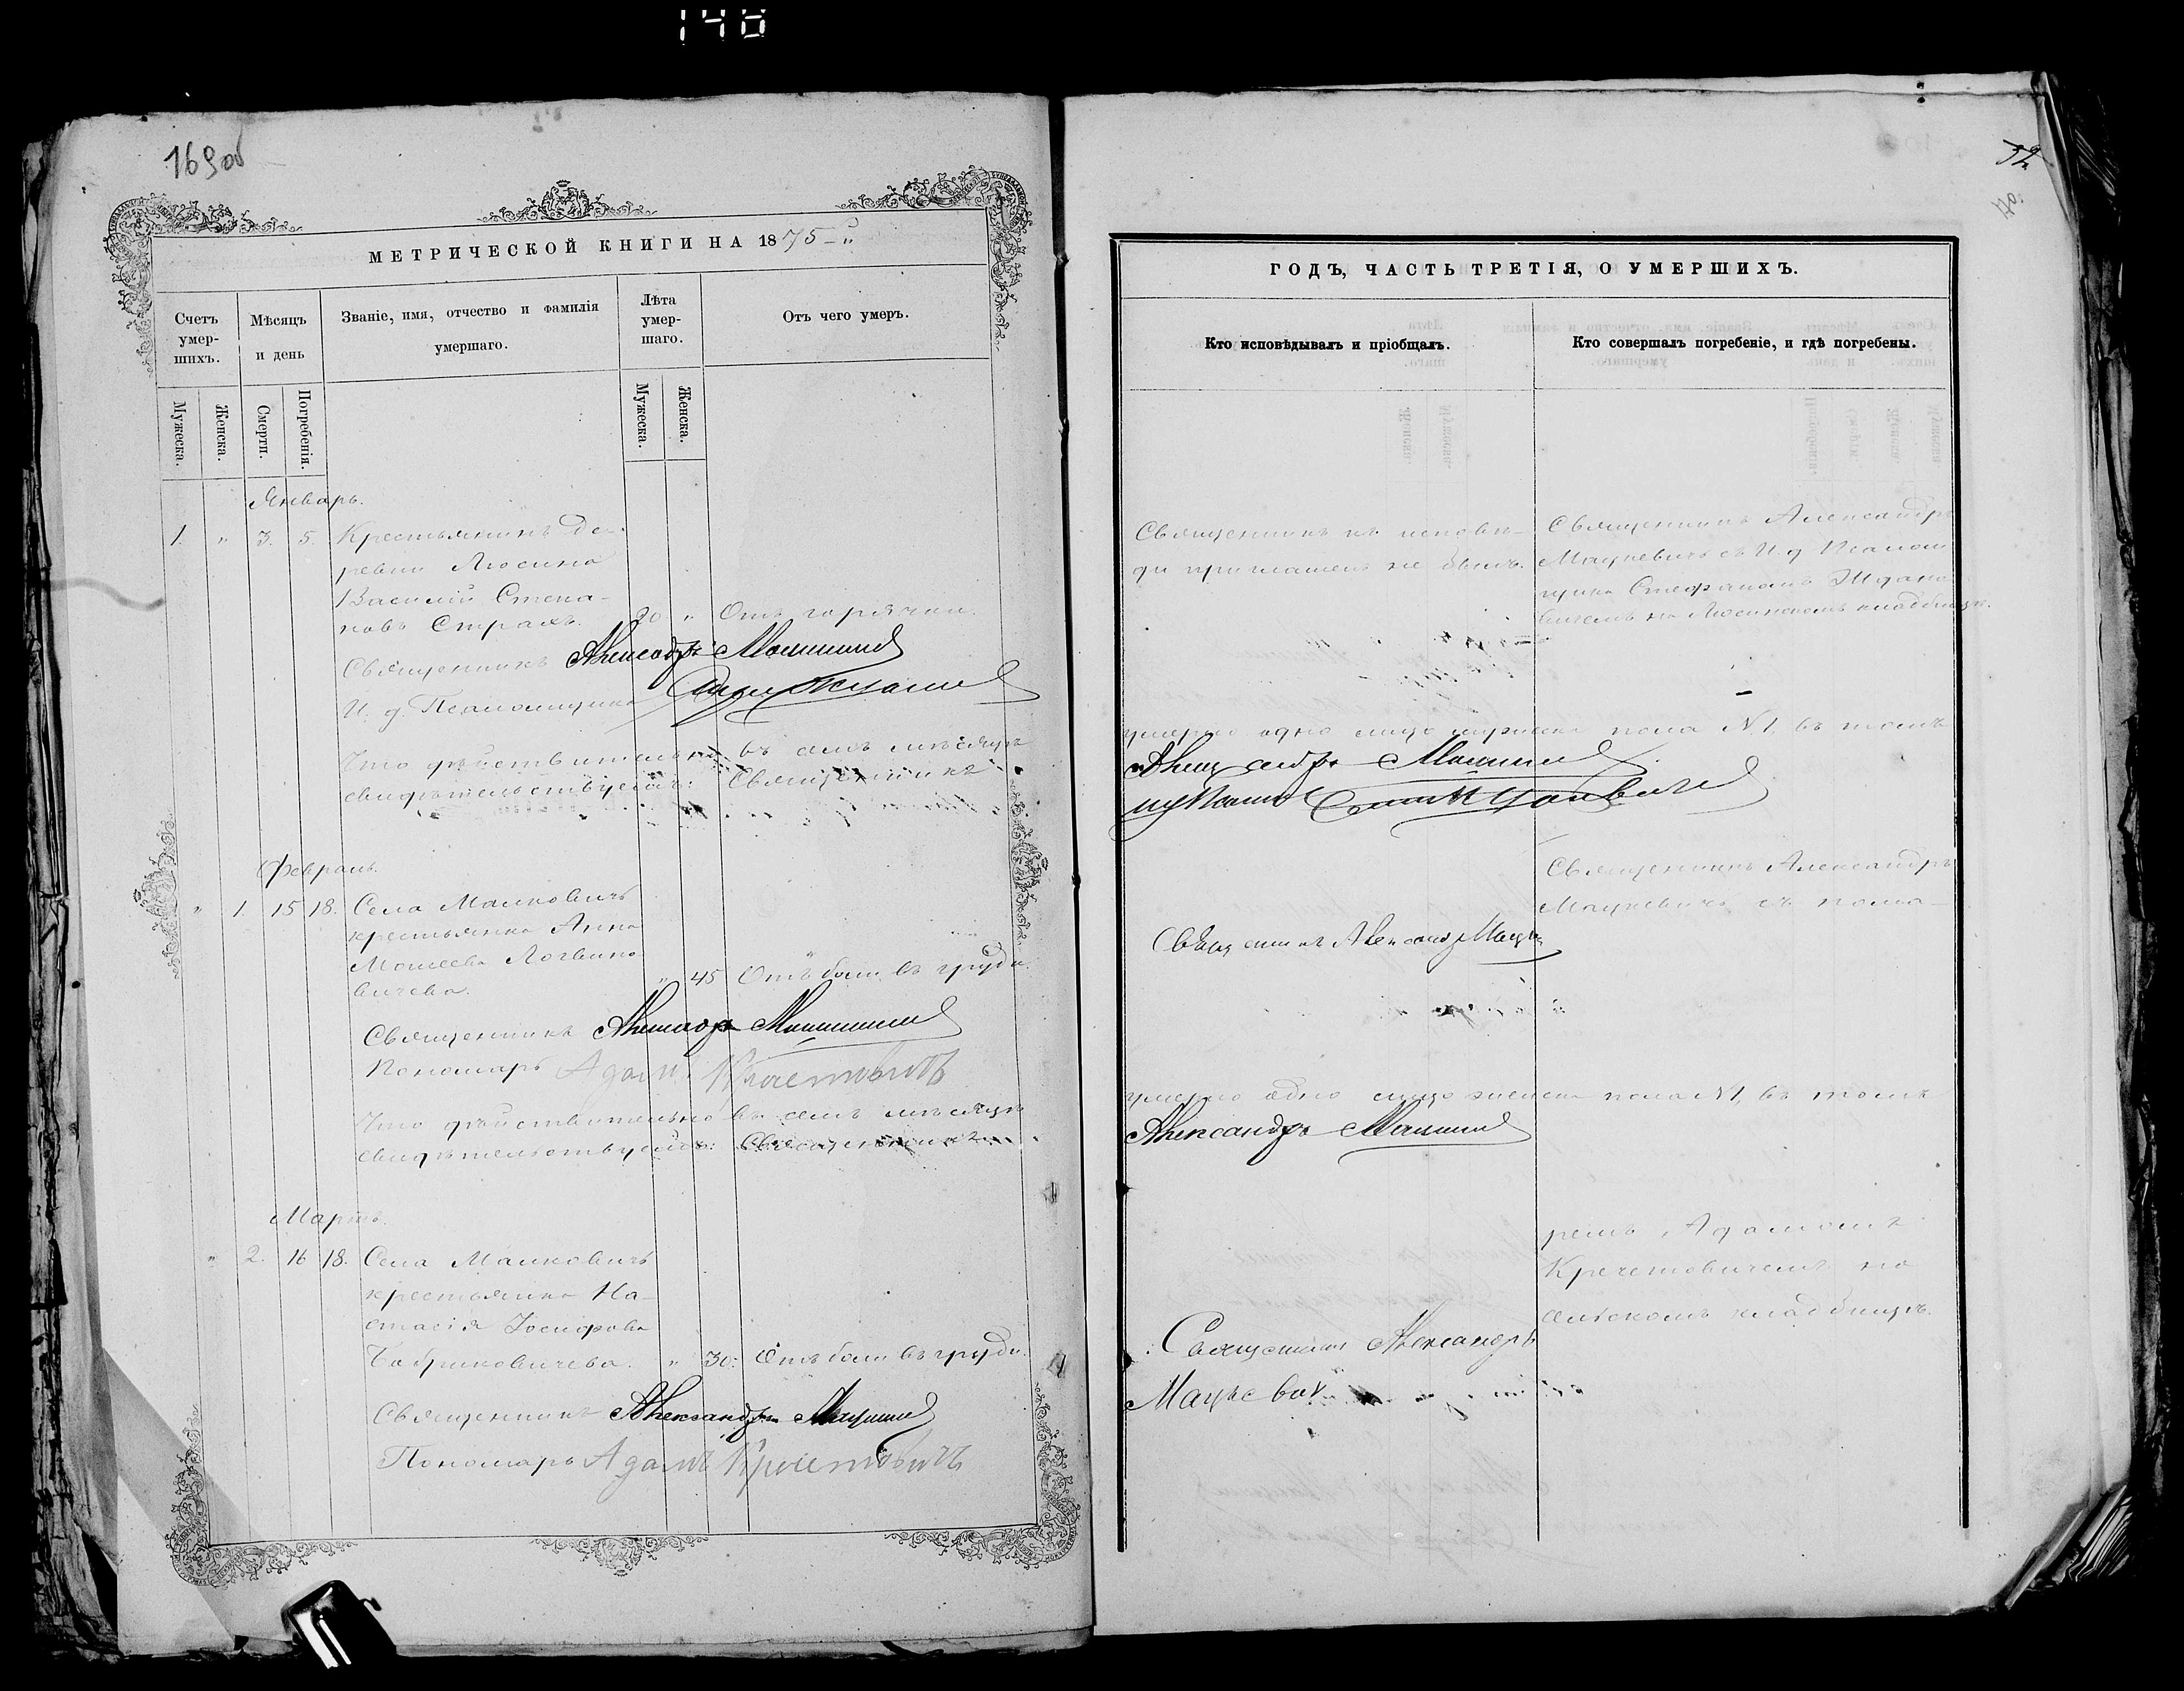 140
169об
МЕТРИЧЕСКОЙ КНИГИ НА 1875-й
Счетъ умер-шихъ.
Мѣсяцъ и день
Званіе, имя, отчество и фамилія умершаго.
Лѣта умер-шаго.
Отъ чего умеръ.
Мужеска.
Женска.
Смерти.
Погребенія.
Мужеска.
Женска.
Январь.
1. " 3. 5. Крестьянинъ де-
ревни Люсина
Василій Степа-
новъ Страхъ. " Отъ горячки.
Священникъ Александръ Мацкевичъ
И. д. Псаломщика
Что дѣйствительно въ семъ мѣсяцѣ
свидѣтельствуемъ: Священникъ
Февраль.
" 1. 15 18. Села Малковичъ
крестьянка Анна
Моисеева Логвино-
вичева. " 45 Отъ боли въ груди.
Священникъ Александръ Мацкевичъ
Пономарь Адамъ Кречетовичъ
Что дѣйствительно въ семъ мѣсяцѣ
свидѣтельствуемъ: Священникъ
Мартъ.
" 2. 16 18. Села Малковичъ
крестьянка На-
стасія Іосифова
Бобриковичева. " 30. Отъ боли въ груди.
Священникъ Александръ Мацкевичъ
Пономарь Адамъ Кречетовичъ
ГОДЪ, ЧАСТЬ ТРЕТІЯ, О УМЕРШИХЪ.
Кто исповѣдывалъ и пріобщалъ.
Кто совершалъ погребеніе, и гдѣ погребены.
Священникъ къ исповѣ-
ди приглашенъ не былъ.
Священникъ Александръ
Мацкевичъ съ И. д. Псалом-
щика Стефаномъ Ждано-
вичемъ на Люсинскомъ кладбищѣ.
умерло одно лицо мужеска пола N 1, въ томъ
Александръ Мацкевичъ
Священникъ Александръ
Мацкевичъ съ пона-
Священникъ Александръ Мацке
умерло одно лицо женска пола N 1, въ томъ
Александръ Мацкевичъ
ремъ Адамомъ
Кречетовичемъ на
сельскомъ кладбищѣ.
Священникъ Александръ
Мацкевичъ